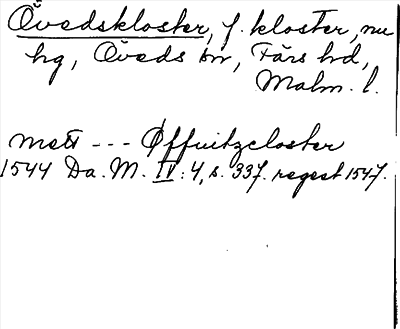 Övedskloster, f. kloster, nu
hg, Öveds sn, Färs hd,
Malm. l.
mett --- Øffuitzcloster
1544 Da. M. IV: 4, s. 337. regest 1547.